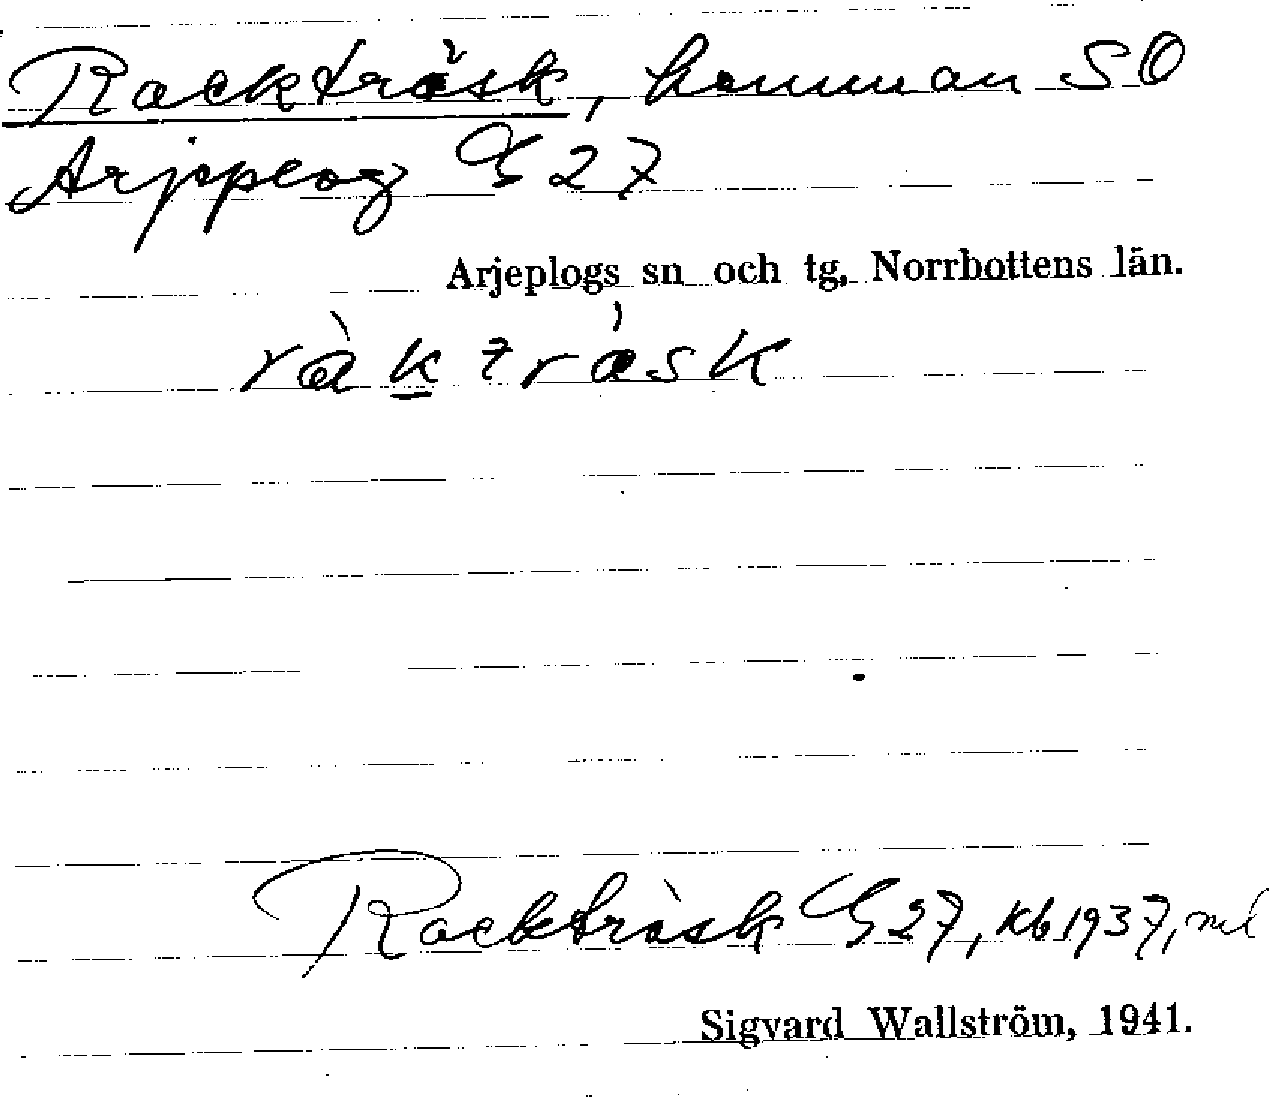 Rackträsk, hemman SO
Arjeplog G 27
Arjeplogs sn och tg, Norrbottens län.
ràkträsk
Rackträsk G 27, Kb 1937,
Sigvard Wallström, 1941.